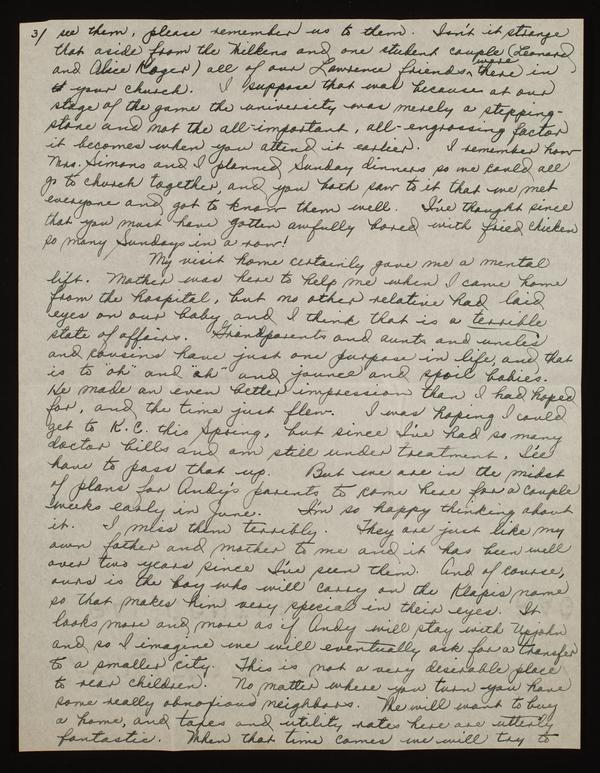 3/ see them, please remember us to them. Isn't it strange
that aside from the Wilkens and one student couple (Leonard
and Alice Roger) all of our Lawrence friends were there in
your church. I suppose that was because at our
stage of the game the university was merely a stepping-
stone and not the all-important, all-engrossing factor
it becomes when you attend it earlier. I remember how
Mrs. Simons and I planned Sunday dinners so we could all
go to church together, and you both saw to it that we met
everyone and got to know them well. I've thought since
that you must have gotten awfully bored with fried chicken
so many Sundays in a row!
My visit home certainly gave me a mental
lift. Mother was here to help me when I came home
from the hospital, but no other relative had laid
eyes on our baby and I think that is a terrible
state of affairs. Grandparents and aunts and uncles
and cousins have just one purpose in life, and that
is to "oh" and "ah" and jounce and spoil babies.
He made an even better impression than I had hoped
for, and the time just flew. I was hoping I could
get to K.C. this Spring, but since I've had so many
doctor bills and am still under treatment, I'll
have to pass that up. But we are in the midst
of plans for Andy's parents to come here for a couple
weeks early in June. I'm so happy thinking about
it. I miss them terribly. They are just like my
own father and mother to me and it has been well
over two years since I've seen them. And of course,
ours is the boy who will carry on the Klapis name
so that makes him very special in their eyes. It
looks more and more as if Andy will stay with Upjohn
and so I imagine we will eventually ask for a transfer
to a smaller city. This is not a very desirable place
to rear children. No matter where you turn you have
some really obnoxious neighbors. We will want to buy
a home, and taxes and utility rates here are utterly
fantastic. When that time comes we will try to